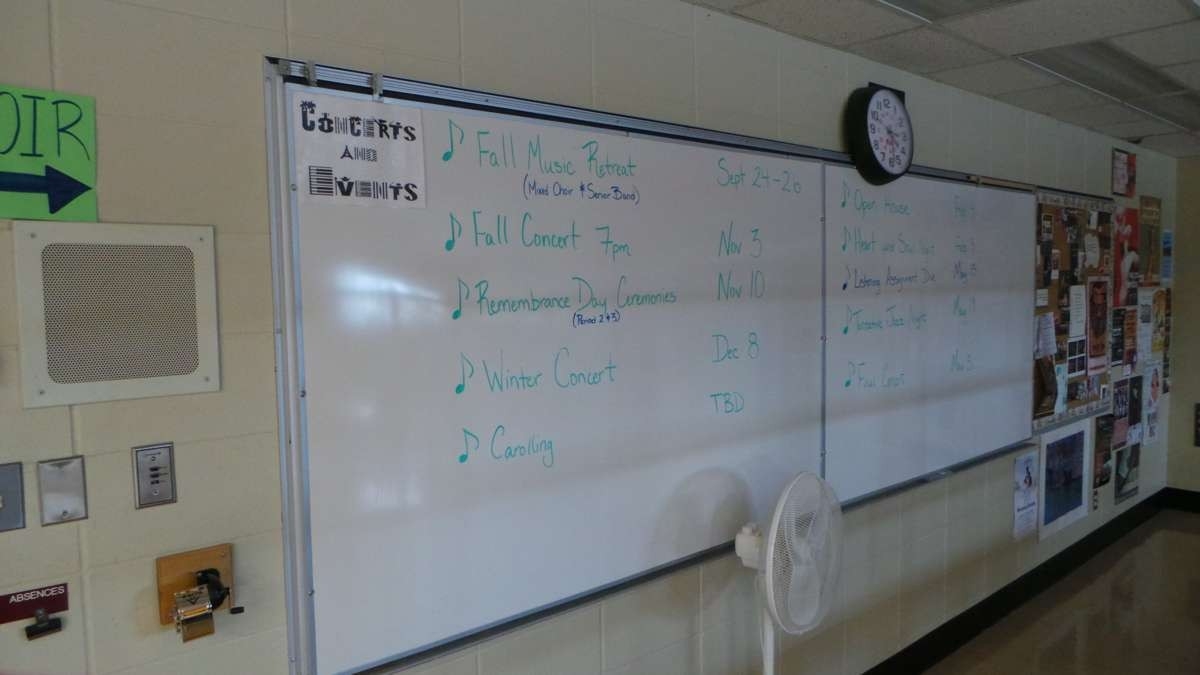 OIR
CONCERTS
AND
EVENTS
Fall Music Retreat Sept 24-26
(Mixed Choir & Senior Band)
Fall Concert 7pm Nov 3
Remembrance Day Ceremonies Nov 10
(Period 2 & 3)
Winter Concert Dec 8
Carolling TBD
Open House Feb
Heart and Soul Night Feb
Listening Assignment Due May
Jazz Night May
Final Concert
ABSENCES